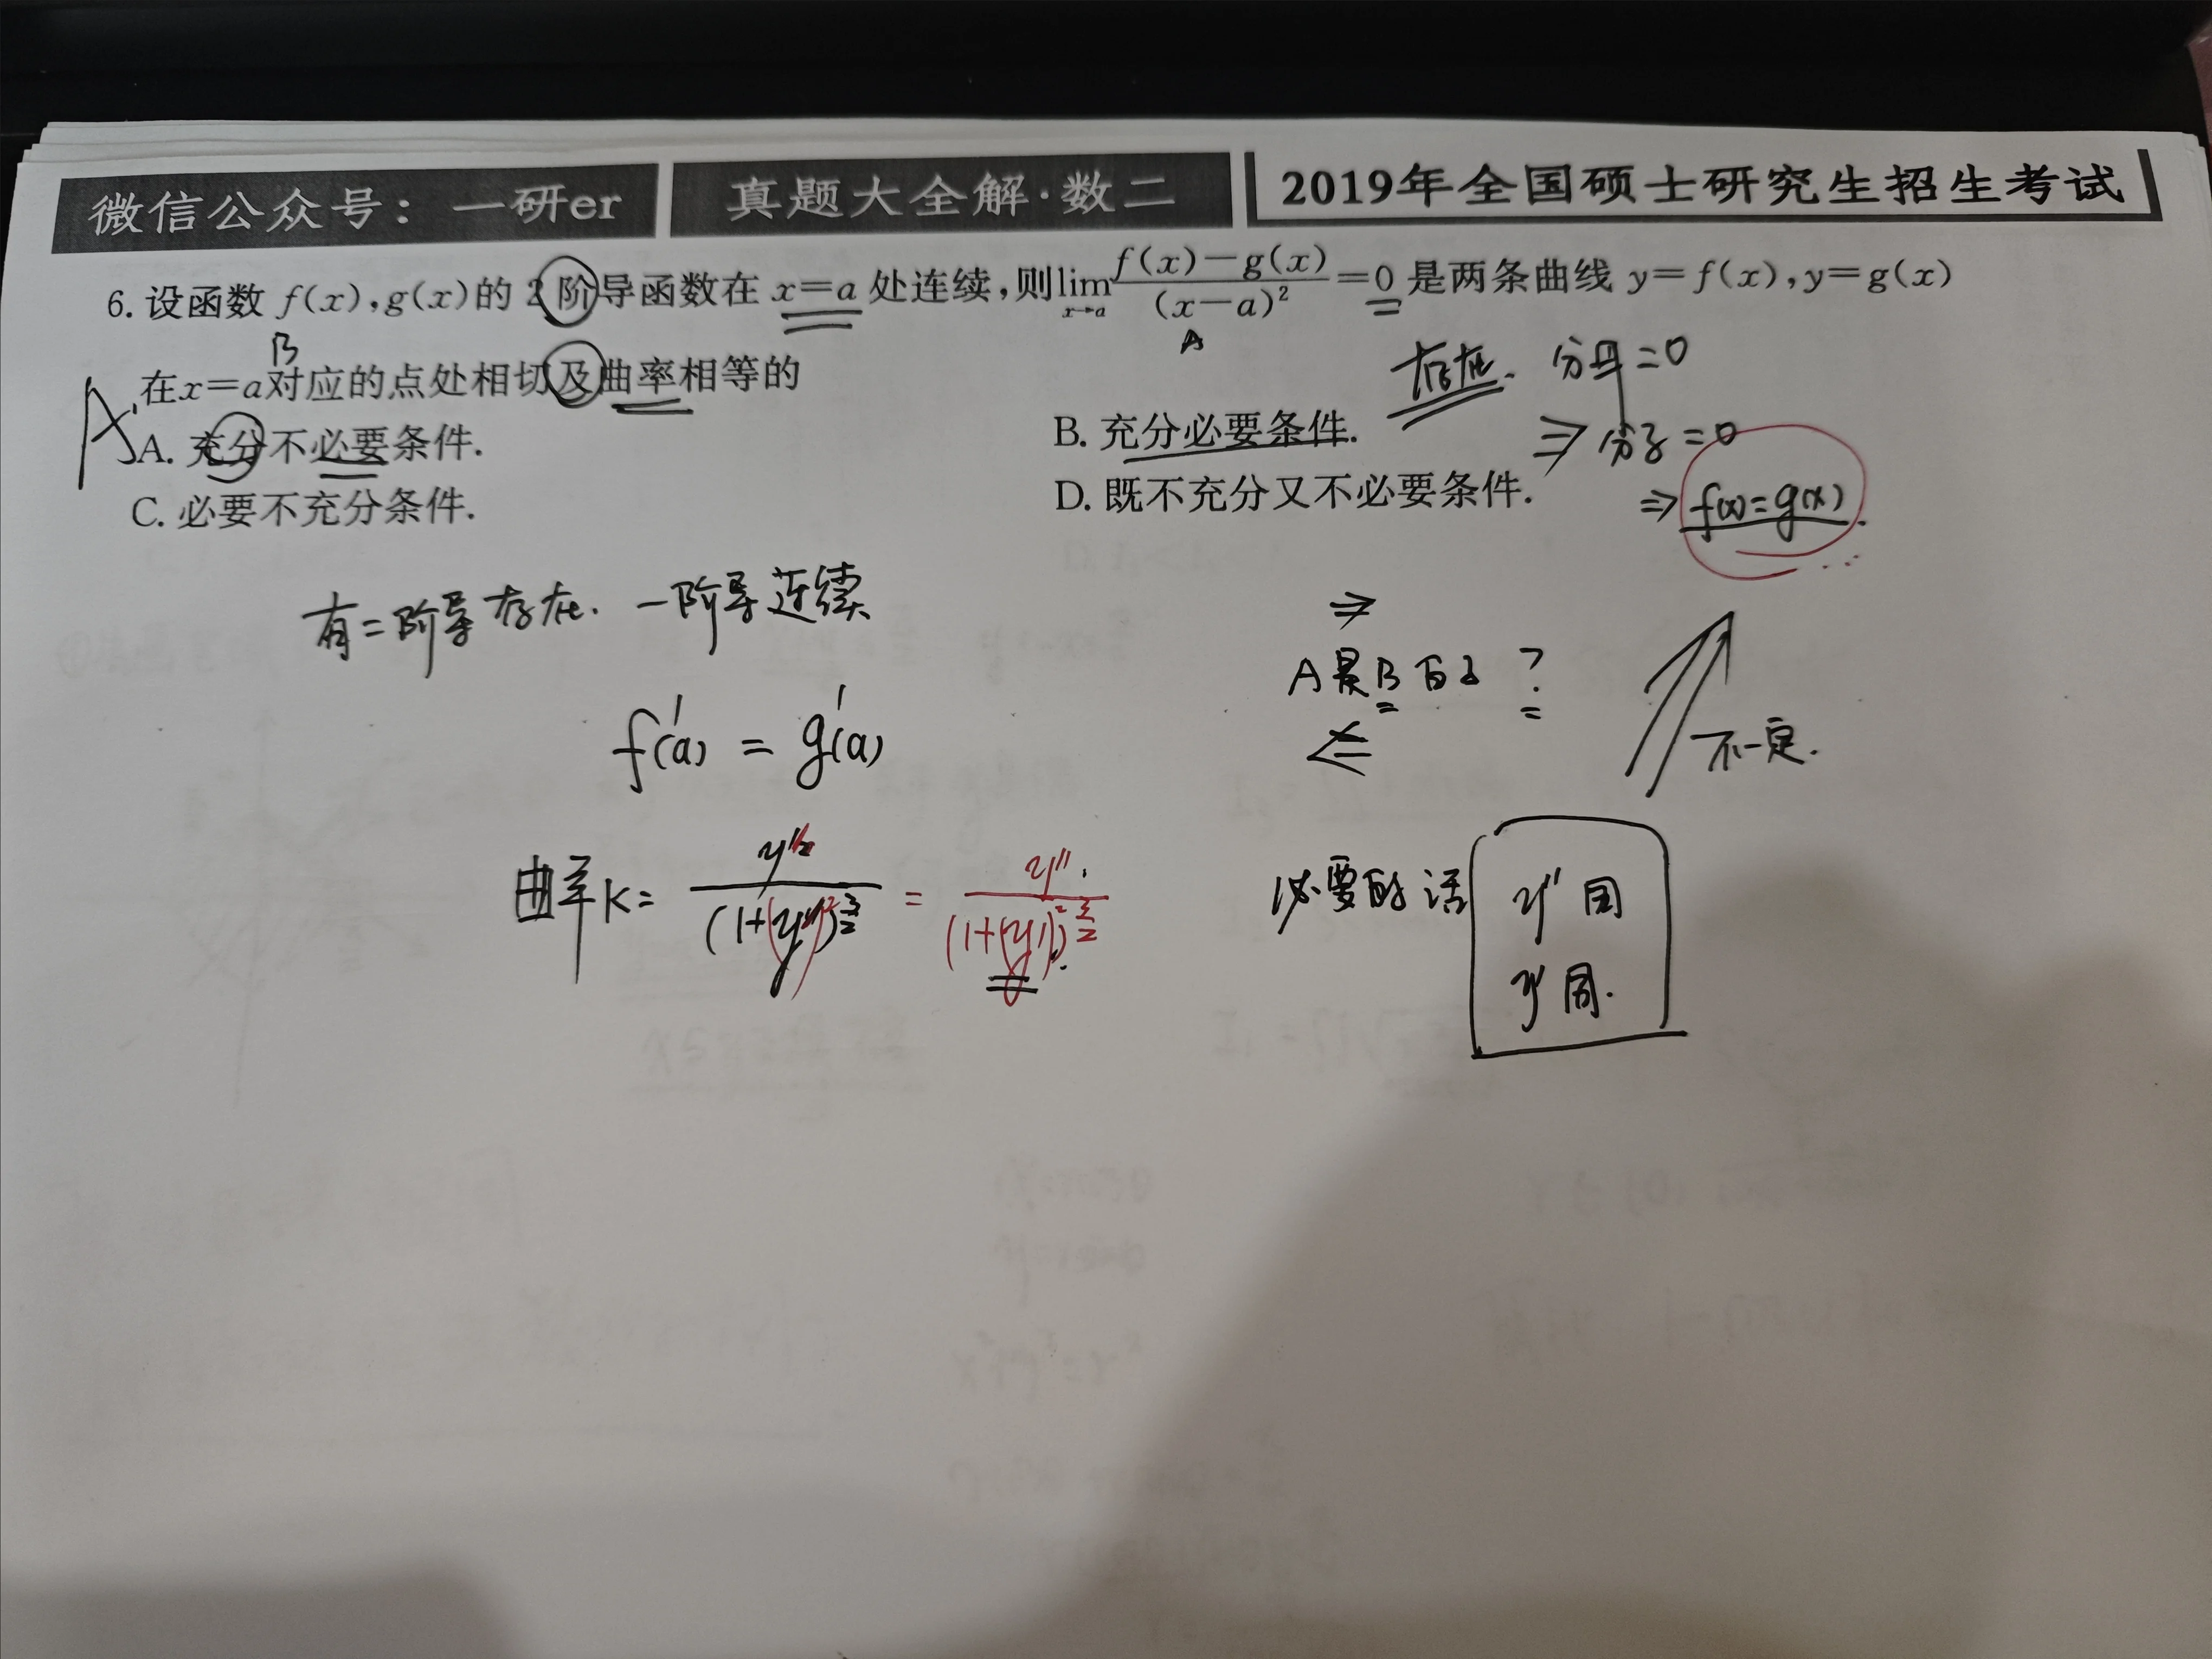 微信公众号：一研er 真题大全解·数二 2019年全国硕士研究生招生考试
6. 设函数 f(x),g(x)的 2 阶导函数在 x=a 处连续,则lim_{x→a} (f(x)-g(x))/(x-a)^2 =0 是两条曲线 y=f(x),y=g(x)
B A
在x=a对应的点处相切及曲率相等的
存在. 分母=0
A. A. 充分不必要条件. B. 充分必要条件.
⇒ 分子=0
C. 必要不充分条件. D. 既不充分又不必要条件.
⇒ f(x)=g(x).
有二阶导存在. 一阶导连续
⇒
A是B的 ?
⇐
不一定.
f'(a) = g'(a)
曲率K= y''/(1+(y')^2)^{3/2} = y''/(1+(y')^2)^{3/2}.
必要的话 y''同
y'同.